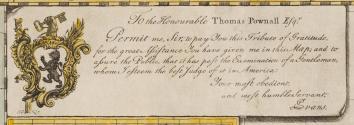 To the Honourable Thomas Pownall Esqr.
Permit me, Sir, to pay You this Tribute of Gratitude,
for the great Assistance You have given me in this Map; and to
assure the Public, that it has past the Examination of a Gentleman,
whom I esteem the best Judge of it in America:
Your most obedient,
and most humble Servant,
L Evans.